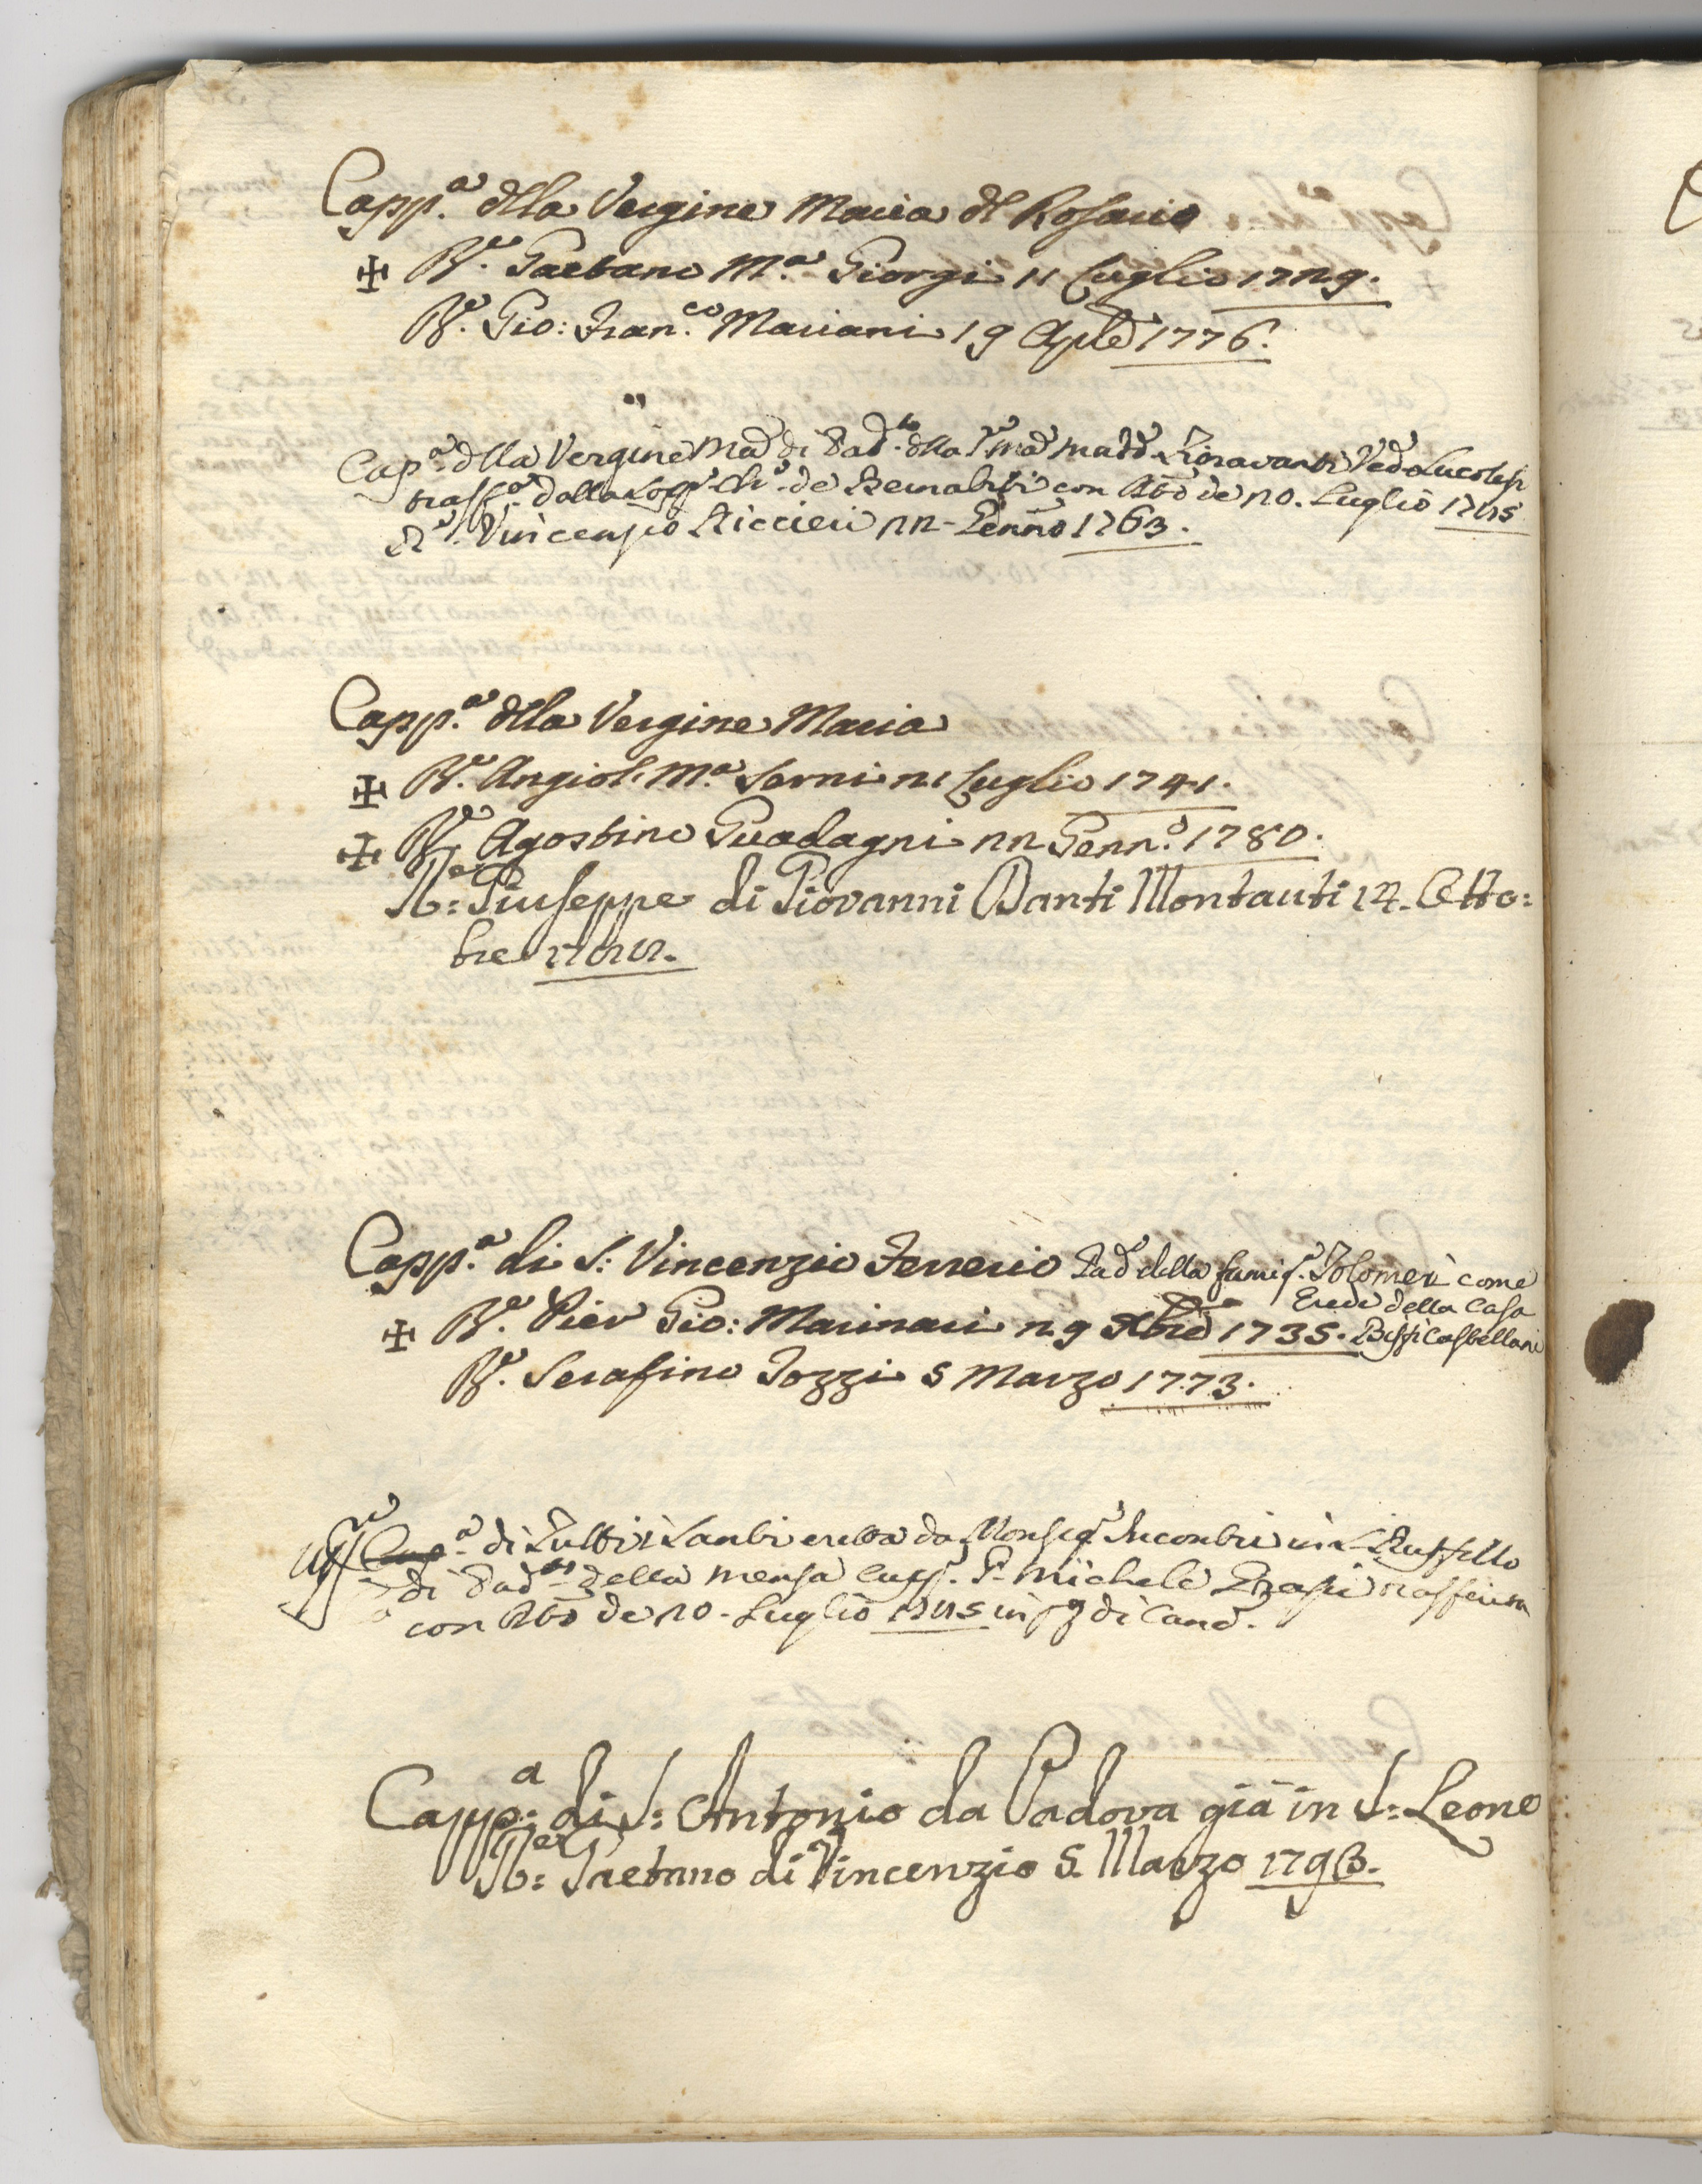 Capp.a della Vergine Maria del Rosario
R.e Gaetano M.a Giorgi 11 Luglio 1729.
R.e Gio: Fran.co Mariani 19 Aple 1776.
Cap.a della Vergine Ma di Pad.to della Fioravanti Ved.a Lucolesi
dalla de con de 20. Luglio 1785
R.e Vincenzio Riccieri 22 Genno 1763.
Capp.a della Vergine Maria
R.e Angiol. M.a Serni 21 Luglio 1741.
R.e Agostino Guadagni 22 Genn.o 1780.
R.e: Giuseppe di Giovanni Danti Montauti 12. Otto:
bre
Capp.a di S: Vincenzio Ferrerio Pad. della famig. Tolomei come
Erede della Casa
R.e Pier Gio: Marinari 29 Xbre 1735. Castellani
R.e Serafino Tozzi 5 Marzo 1773.
Cap.a di Tutti i Santi eretta da Monsig. Incontri in S. Ruffillo
di Pad.to della mensa P. Michele
con de 20. Luglio 1785 di Cano.
Capp.a: di S: Antonio da Padova già in S: Leone
R.e: Gaetano di Vincenzio 5. Marzo 1793.